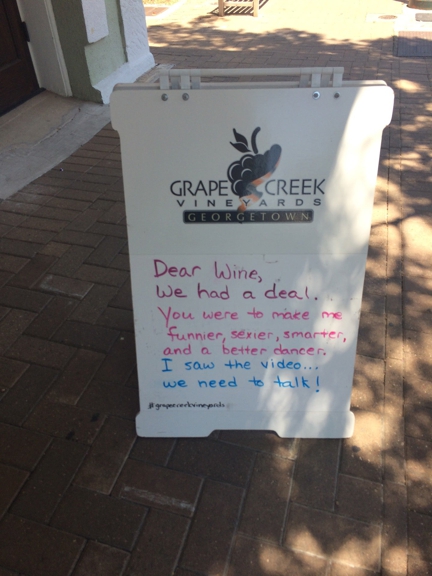 GRAPE CREEK
VINEYARDS
GEORGETOWN
Dear Wine,
We had a deal.
You were to make me
funnier, sexier, smarter,
and a better dancer.
I saw the video...
we need to talk!
#grapecreekvineyards